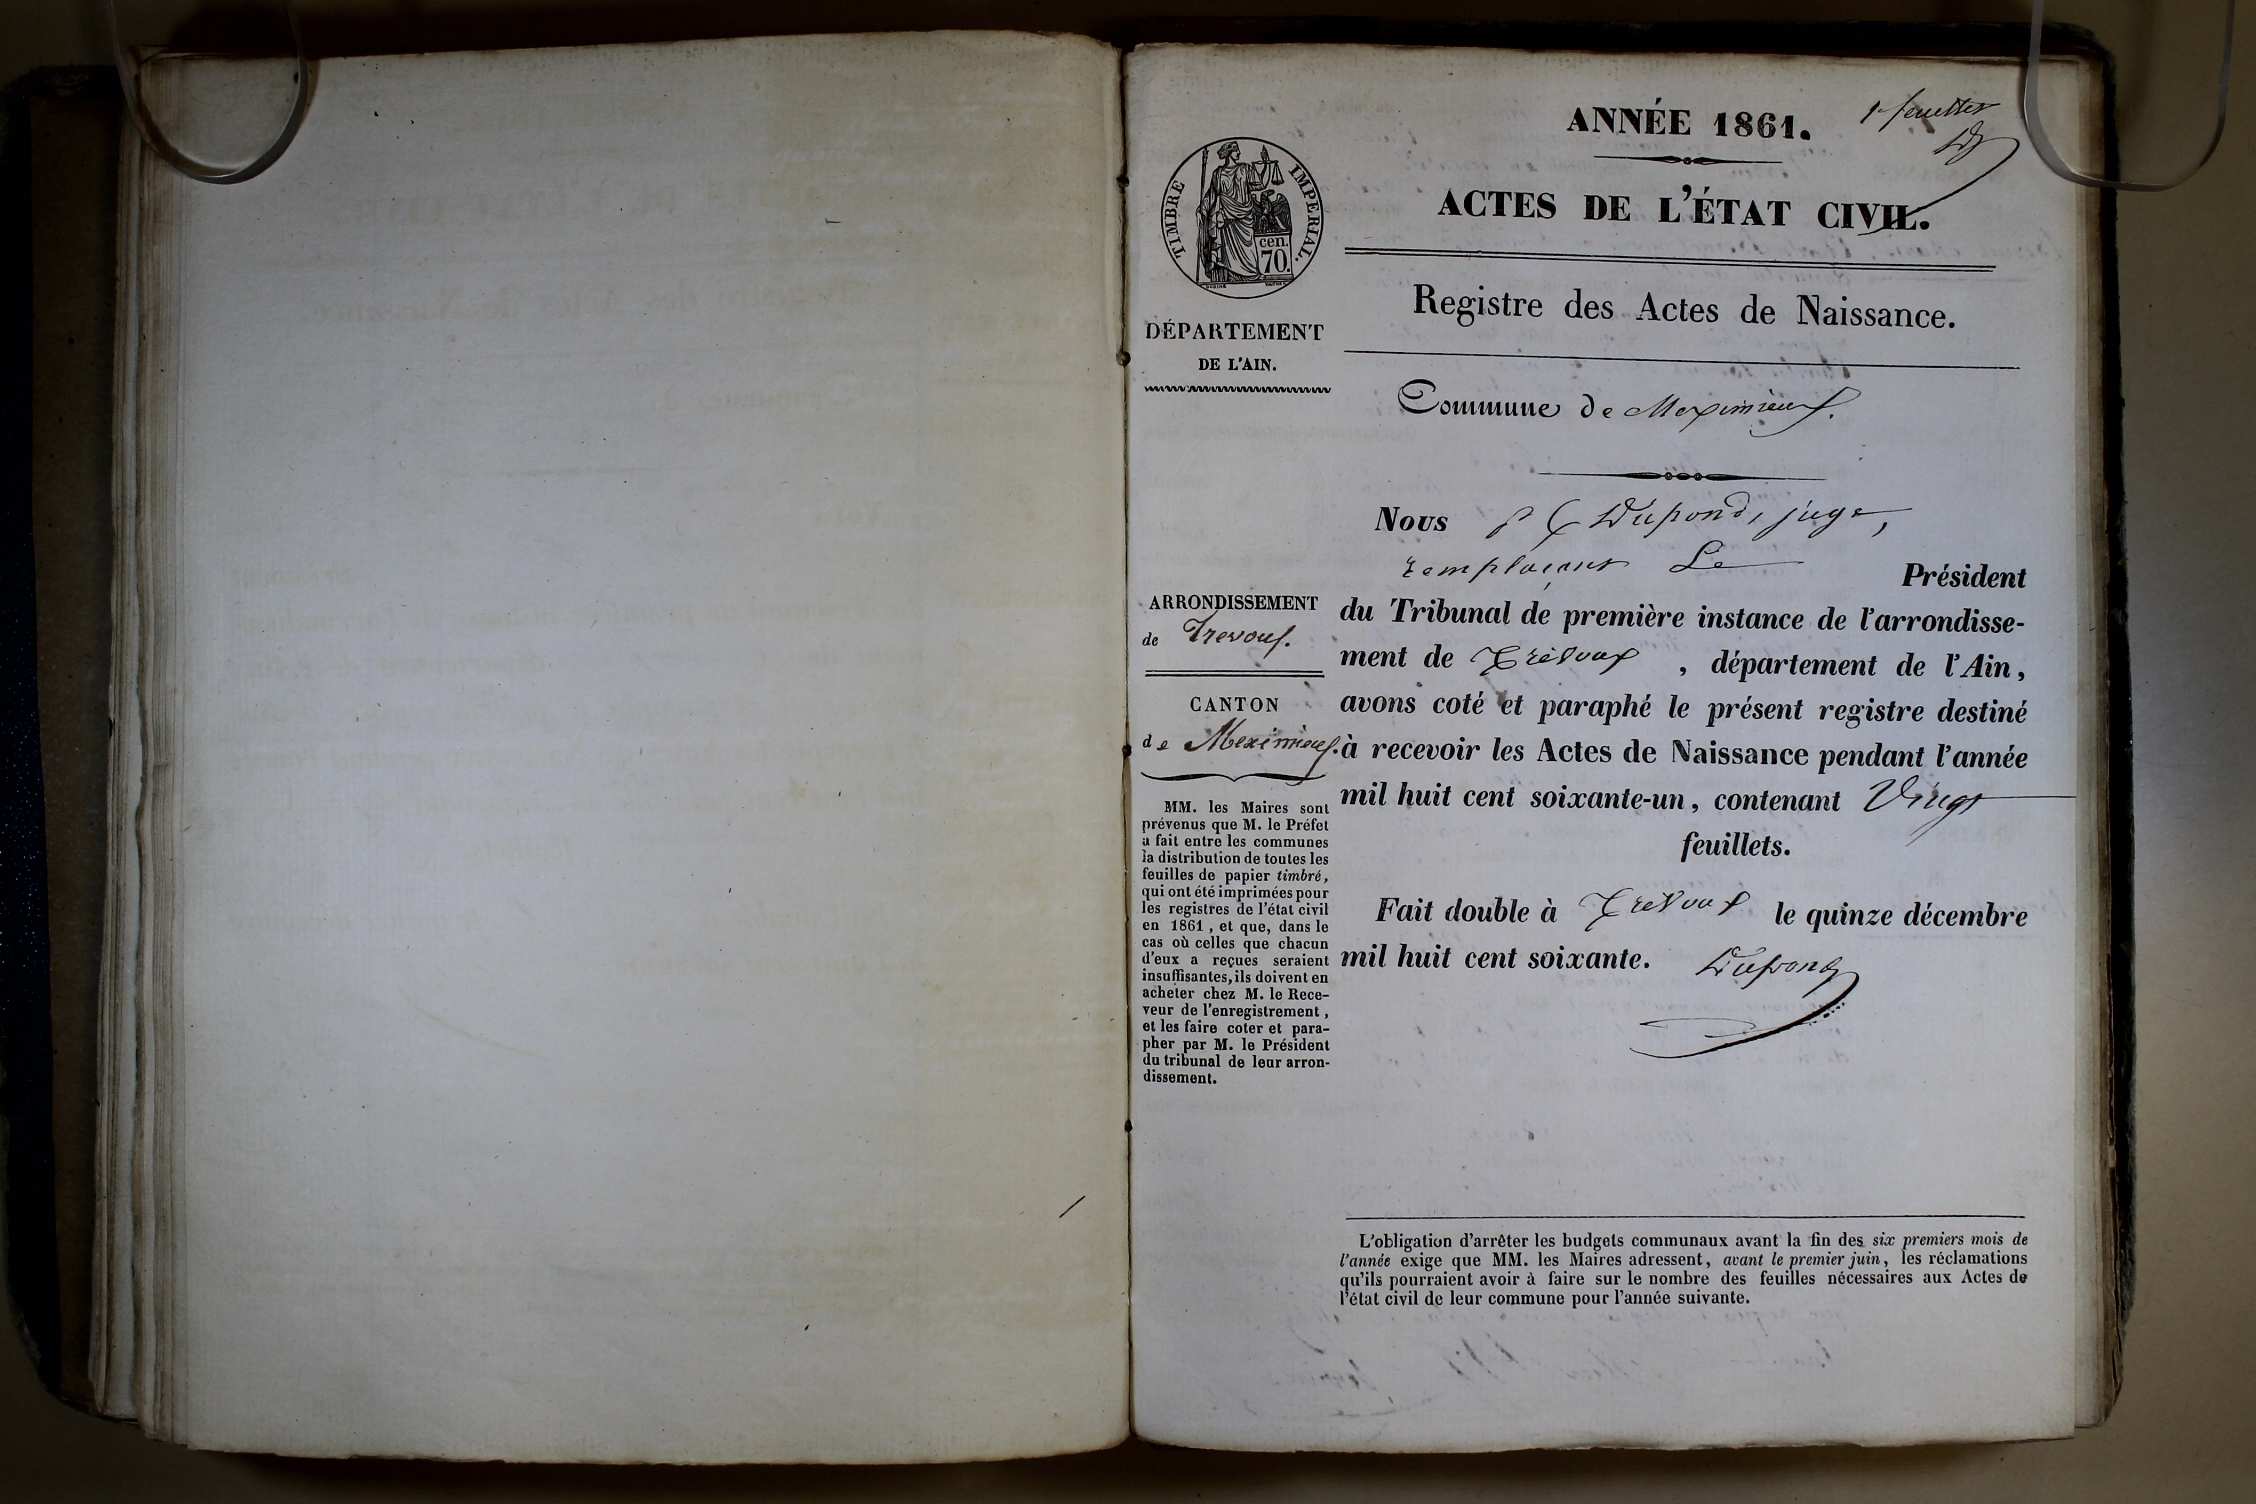 ANNÉE 1861.
ACTES DE L'ÉTAT CIVIL.
TIMBRE IMPERIAL.
cen.
70.
Registre des Actes de Naissance.
DÉPARTEMENT
DE L'AIN.
Commune de Meximieux.
Nous Dupond, juge,
remplaçant Le Président
du Tribunal de première instance de l'arrondisse-
ment de Trévoux, département de l'Ain,
avons coté et paraphé le présent registre destiné
à recevoir les Actes de Naissance pendant l'année
mil huit cent soixante-un, contenant Vingt
feuillets.
Fait double à Trévoux le quinze décembre
mil huit cent soixante. Dupond
ARRONDISSEMENT
de Trevoux.
CANTON
de Meximieux.
MM. les Maires sont
prévenus que M. le Préfet
a fait entre les communes
la distribution de toutes les
feuilles de papier timbré,
qui ont été imprimées pour
les registres de l'état civil
en 1861, et que, dans le
cas où celles que chacun
d'eux a reçues seraient
insuffisantes, ils doivent en
acheter chez M. le Rece-
veur de l'enregistrement,
et les faire coter et para-
pher par M. le Président
du tribunal de leur arron-
dissement.
L'obligation d'arrêter les budgets communaux avant la fin des six premiers mois de
l'année exige que MM. les Maires adressent, avant le premier juin, les réclamations
qu'ils pourraient avoir à faire sur le nombre des feuilles nécessaires aux Actes de
l'état civil de leur commune pour l'année suivante.